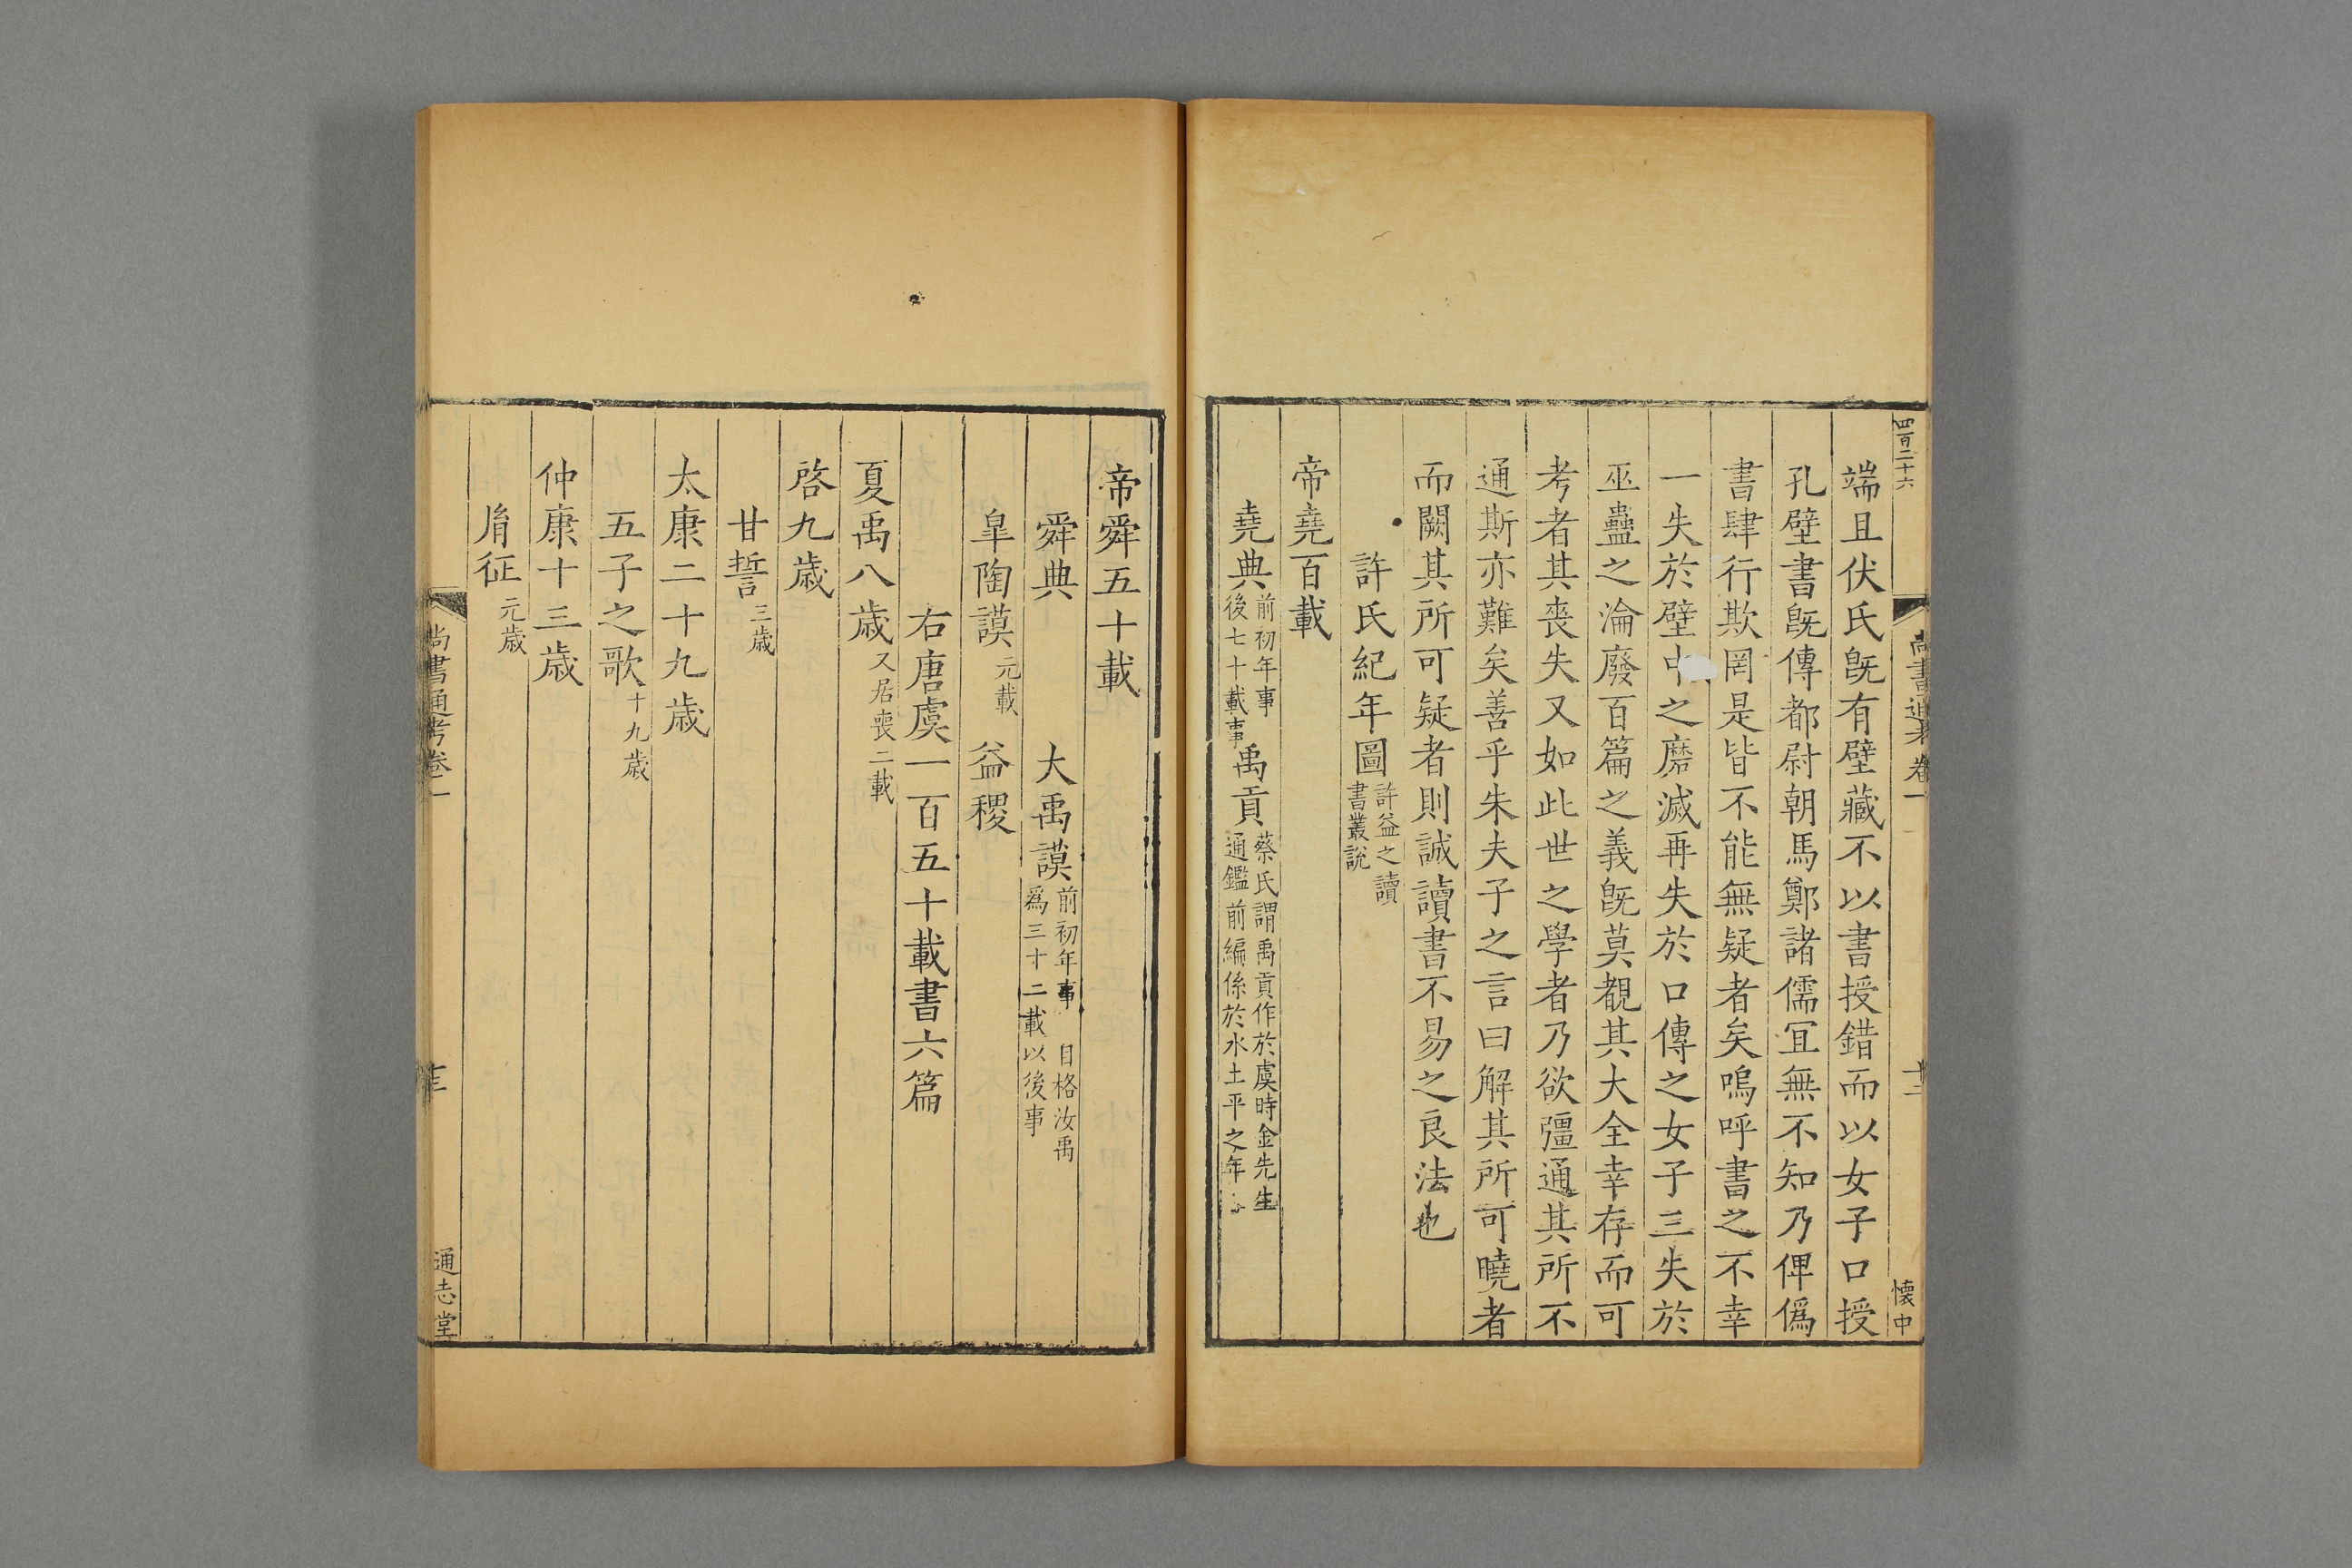 四百二十六
尚書通考卷一
十二
懐中
端且伏氏旣有壁藏不以書授錯而以女子口授
孔壁書旣傳都尉朝馬鄭諸儒冝無不知乃俾僞
書肆行欺罔是皆不能無疑者矣嗚呼書之不幸
一失於壁中之磨滅再失於口傳之女子三失於
巫蠱之淪廢百篇之義旣莫覩其大全幸存而可
考者其喪失又如此世之學者乃欲彊通其所不
通斯亦難矣善乎朱夫子之言曰解其所可曉者
而闕其所可疑者則誠讀書不易之良法也
許氏紀年圖許益之讀
書叢說
帝堯百載
堯典前初年事
後七十載事
禹貢蔡氏謂禹貢作於虞時金先生
通鑑前編係於水土平之年
帝舜五十載
舜典
大禹謨前初年事 目格汝禹
爲三十二載以後事
皐陶謨元載
益稷
右唐虞一百五十載書六篇
夏禹八歲又居喪二載
啓九歲
甘誓三歲
太康二十九歲
五子之歌十九歲
仲康十三歲
胤征元歲
尚書通考卷一
通志堂